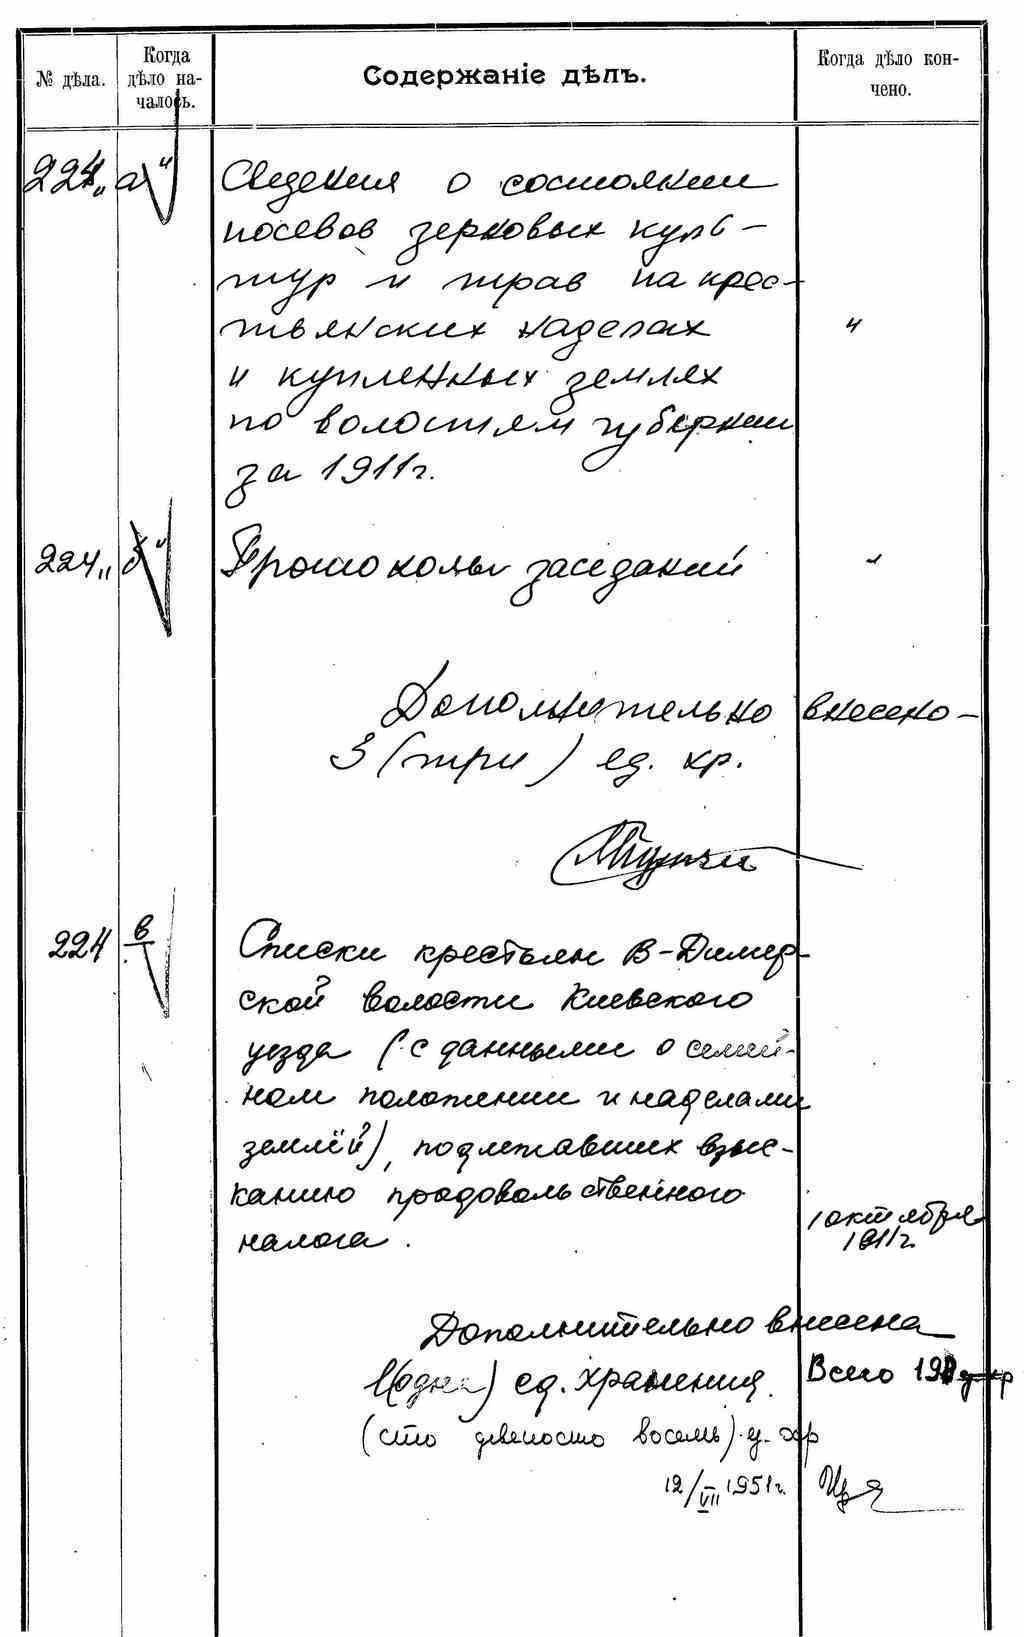 № дѣла.
Когда
дѣло на-
чалось.
Содержаніе дѣлъ.
Когда дѣло кон-
чено.
224 „а“ Сведения о состоянии
посевов зерновых куль-
тур и трав на крес-
тьянских наделах "
и купленных землях
по волостям губернии
за 1911г.
224 „б“ Протоколы заседаний "
Дополнительно внесено -
3 (три) ед. хр.
224 в Списки крестьян В-Димер-
ской волости Киевского
уезда (с данными о семей-
ном положении и наделами
землёй), подлежавших взыс-
канию продовольственного
налога. 1 октября
1911г.
Дополнительно внесена
1(одна) ед. хранения. Всего 198 ед. хр
(сто девяносто восемь) ед. хр
12/VII 1951г.